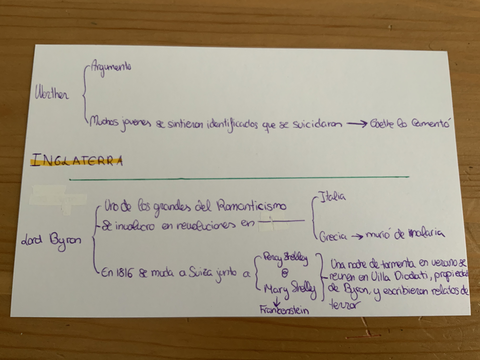 Argumento
Werther
Muchos jovenes se sintieron identificados que se suicidaron → Goethe lo lamentó
INGLATERRA
Lord Byron
Uno de los grandes del Romanticismo
Se involucro en revoluciones en
Italia
Grecia → murió de malaria
En 1816 se muda a Suiza junto a
Percy Shelley
Mary Shelley
Frankenstein
Una noche de tormenta en verano se
reunen en Villa Diodati, propiedad
de Byron, y escribieron relatos de
terror